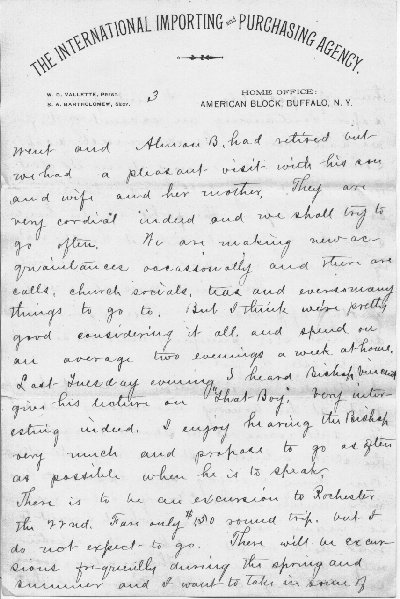 THE INTERNATIONAL IMPORTING and PURCHASING AGENCY.
W. C. VALLETTE, PRIST.
S. A. BARTHOLOMEW, SECY.
3
HOME OFFICE:
AMERICAN BLOCK, BUFFALO, N. Y.
went and Alman B. had retired but
we had a pleasant visit with his son
and wife and her mother. They are
very cordial indeed and we shall try to
go often. We are making new ac-
quaintances occassionally and there are
calls, church socials, teas and ever so many
things to go to. But I think we're pretty
good considering it all and spend on
an average two evenings a week at home.
Last Tuesday evening I heard Bishop Vincent
give his lecture on "That Boy". Very inter-
esting indeed. I enjoy hearing the Bishop
very much and propose to go as often
as possible when he is to speak.
There is to be an excursion to Rochester
the 22nd. Fare only round trip. but I
do not expect to go. There will be excur-
sions frequently during the spring and
summer and I want to take in some of